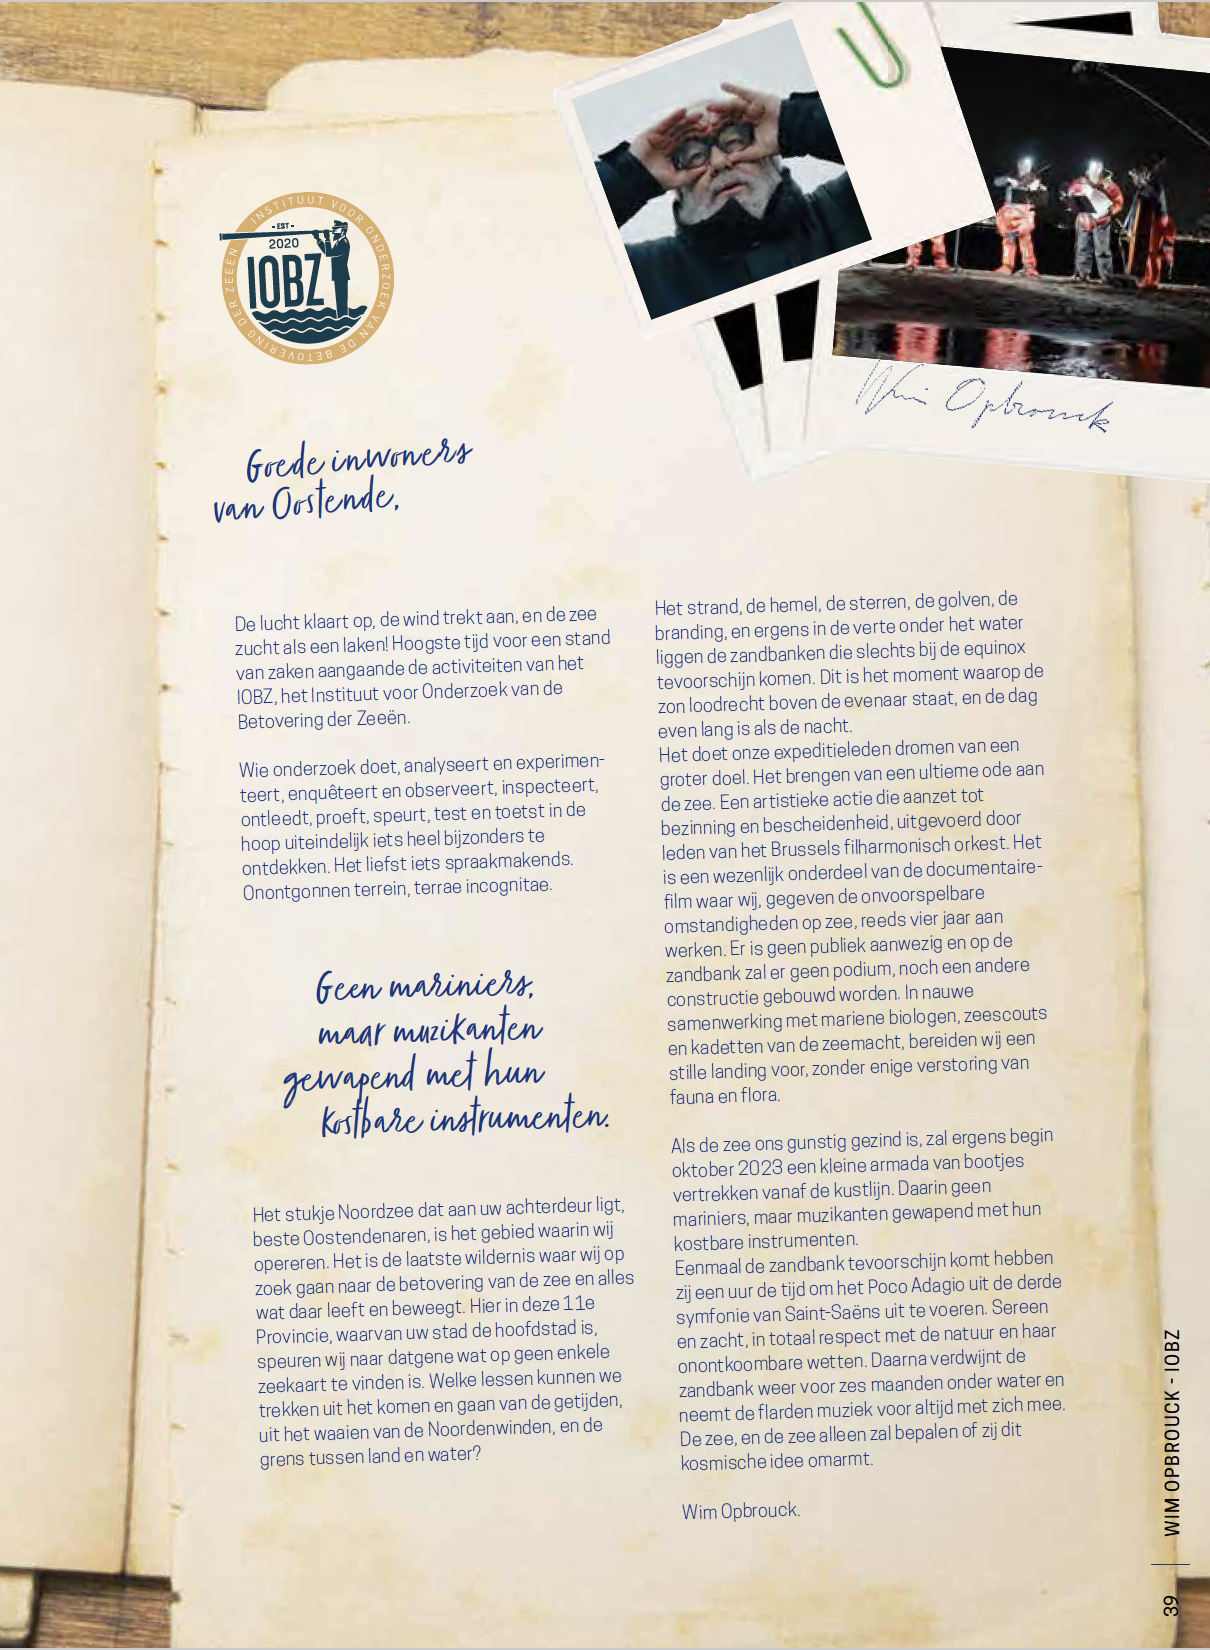 INSTITUUT VOOR ONDERZOEK VAN DE BETOVERING DER ZEEËN
- EST -
2020
IOBZ
Wim Opbrouck
Goede inwoners
van Oostende,
De lucht klaart op, de wind trekt aan, en de zee
zucht als een laken! Hoogste tijd voor een stand
van zaken aangaande de activiteiten van het
IOBZ, het Instituut voor Onderzoek van de
Betovering der Zeeën.
Wie onderzoek doet, analyseert en experimen-
teert, enquêteert en observeert, inspecteert,
ontleedt, proeft, speurt, test en toetst in de
hoop uiteindelijk iets heel bijzonders te
ontdekken. Het liefst iets spraakmakends.
Onontgonnen terrein, terrae incognitae.
Geen mariniers,
maar muzikanten
gewapend met hun
kostbare instrumenten.
Het stukje Noordzee dat aan uw achterdeur ligt,
beste Oostendenaren, is het gebied waarin wij
opereren. Het is de laatste wildernis waar wij op
zoek gaan naar de betovering van de zee en alles
wat daar leeft en beweegt. Hier in deze 11e
Provincie, waarvan uw stad de hoofdstad is,
speuren wij naar datgene wat op geen enkele
zeekaart te vinden is. Welke lessen kunnen we
trekken uit het komen en gaan van de getijden,
uit het waaien van de Noordenwinden, en de
grens tussen land en water?
Het strand, de hemel, de sterren, de golven, de
branding, en ergens in de verte onder het water
liggen de zandbanken die slechts bij de equinox
tevoorschijn komen. Dit is het moment waarop de
zon loodrecht boven de evenaar staat, en de dag
even lang is als de nacht.
Het doet onze expeditieleden dromen van een
groter doel. Het brengen van een ultieme ode aan
de zee. Een artistieke actie die aanzet tot
bezinning en bescheidenheid, uitgevoerd door
leden van het Brussels filharmonisch orkest. Het
is een wezenlijk onderdeel van de documentaire-
film waar wij, gegeven de onvoorspelbare
omstandigheden op zee, reeds vier jaar aan
werken. Er is geen publiek aanwezig en op de
zandbank zal er geen podium, noch een andere
constructie gebouwd worden. In nauwe
samenwerking met mariene biologen, zeescouts
en kadetten van de zeemacht, bereiden wij een
stille landing voor, zonder enige verstoring van
fauna en flora.
Als de zee ons gunstig gezind is, zal ergens begin
oktober 2023 een kleine armada van bootjes
vertrekken vanaf de kustlijn. Daarin geen
mariniers, maar muzikanten gewapend met hun
kostbare instrumenten.
Eenmaal de zandbank tevoorschijn komt hebben
zij een uur de tijd om het Poco Adagio uit de derde
symfonie van Saint-Saëns uit te voeren. Sereen
en zacht, in totaal respect met de natuur en haar
onontkoombare wetten. Daarna verdwijnt de
zandbank weer voor zes maanden onder water en
neemt de flarden muziek voor altijd met zich mee.
De zee, en de zee alleen zal bepalen of zij dit
kosmische idee omarmt.
Wim Opbrouck.
WIM OPBROUCK - IOBZ
39